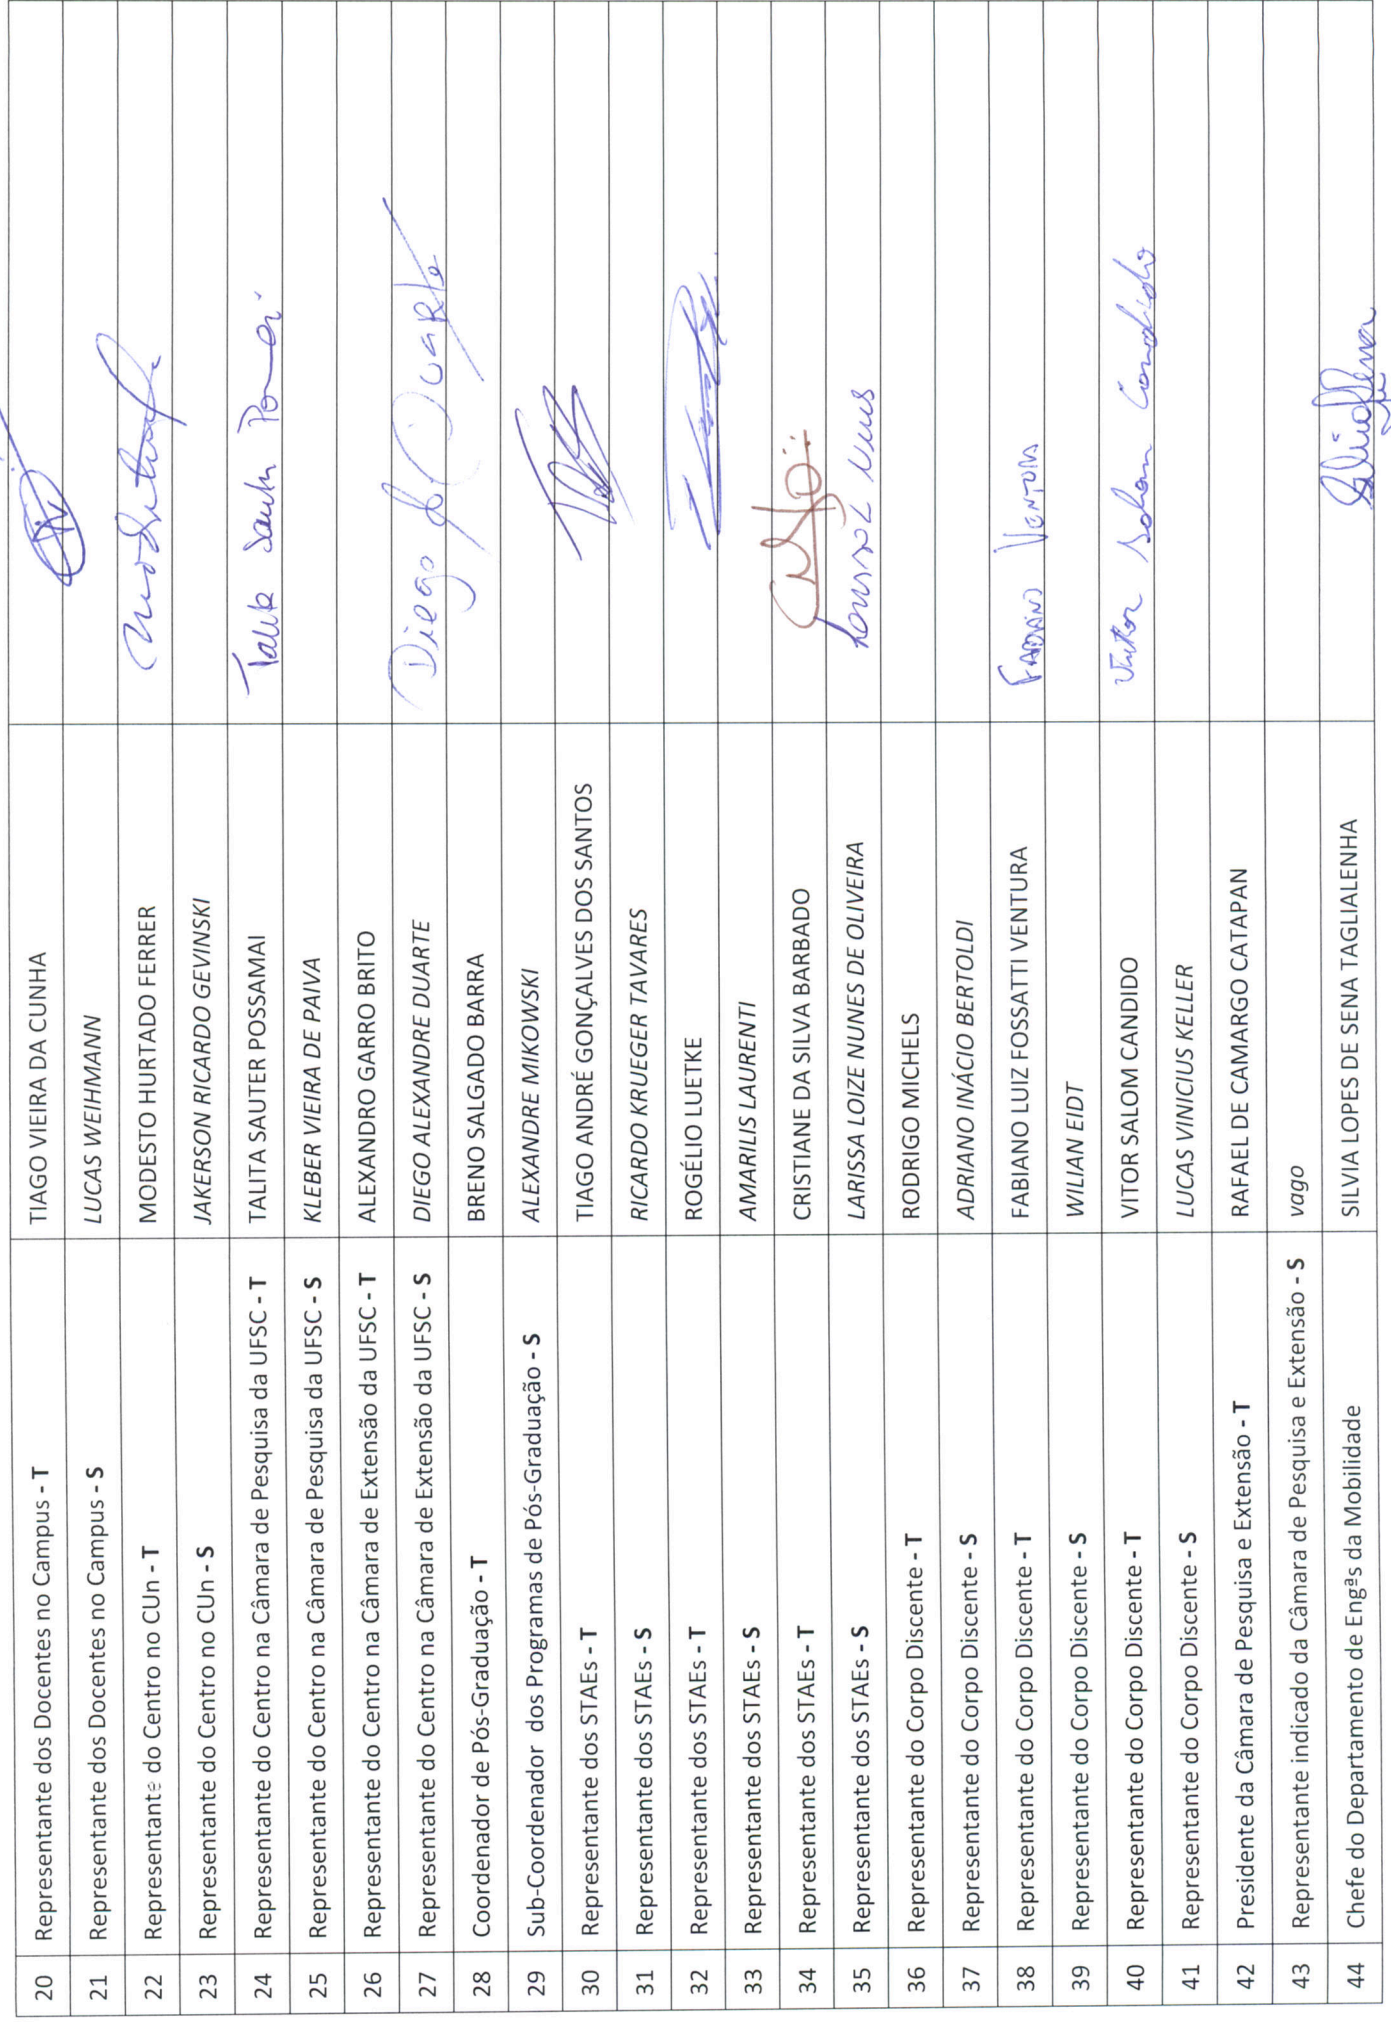 20 Representante dos Docentes no Campus - T TIAGO VIEIRA DA CUNHA
21 Representante dos Docentes no Campus - S LUCAS WEIHMANN
22 Representante do Centro no CUn - T MODESTO HURTADO FERRER
23 Representante do Centro no CUn - S JAKERSON RICARDO GEVINSKI
24 Representante do Centro na Câmara de Pesquisa da UFSC - T TALITA SAUTER POSSAMAI
25 Representante do Centro na Câmara de Pesquisa da UFSC - S KLEBER VIEIRA DE PAIVA
26 Representante do Centro na Câmara de Extensão da UFSC - T ALEXANDRO GARRO BRITO
27 Representante do Centro na Câmara de Extensão da UFSC - S DIEGO ALEXANDRE DUARTE Diego A Duarte
28 Coordenador de Pós-Graduação - T BRENO SALGADO BARRA
29 Sub-Coordenador dos Programas de Pós-Graduação - S ALEXANDRE MIKOWSKI
30 Representante dos STAEs - T TIAGO ANDRÉ GONÇALVES DOS SANTOS
31 Representante dos STAEs - S RICARDO KRUEGER TAVARES
32 Representante dos STAEs - T ROGÉLIO LUETKE
33 Representante dos STAEs - S AMARILIS LAURENTI
34 Representante dos STAEs - T CRISTIANE DA SILVA BARBADO
35 Representante dos STAEs - S LARISSA LOIZE NUNES DE OLIVEIRA
36 Representante do Corpo Discente - T RODRIGO MICHELS
37 Representante do Corpo Discente - S ADRIANO INÁCIO BERTOLDI
38 Representante do Corpo Discente - T FABIANO LUIZ FOSSATTI VENTURA FABIANO VENTURA
39 Representante do Corpo Discente - S WILIAN EIDT
40 Representante do Corpo Discente - T VITOR SALOM CANDIDO Vitor Salom Candido
41 Representante do Corpo Discente - S LUCAS VINICIUS KELLER
42 Presidente da Câmara de Pesquisa e Extensão - T RAFAEL DE CAMARGO CATAPAN
43 Representante indicado da Câmara de Pesquisa e Extensão - S vago
44 Chefe do Departamento de Engªs da Mobilidade SILVIA LOPES DE SENA TAGLIALENHA